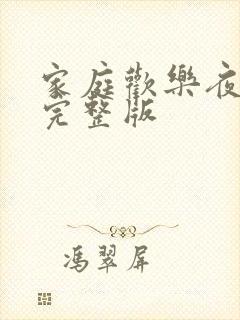 家庭歡樂夜
完整版
馮翠屏